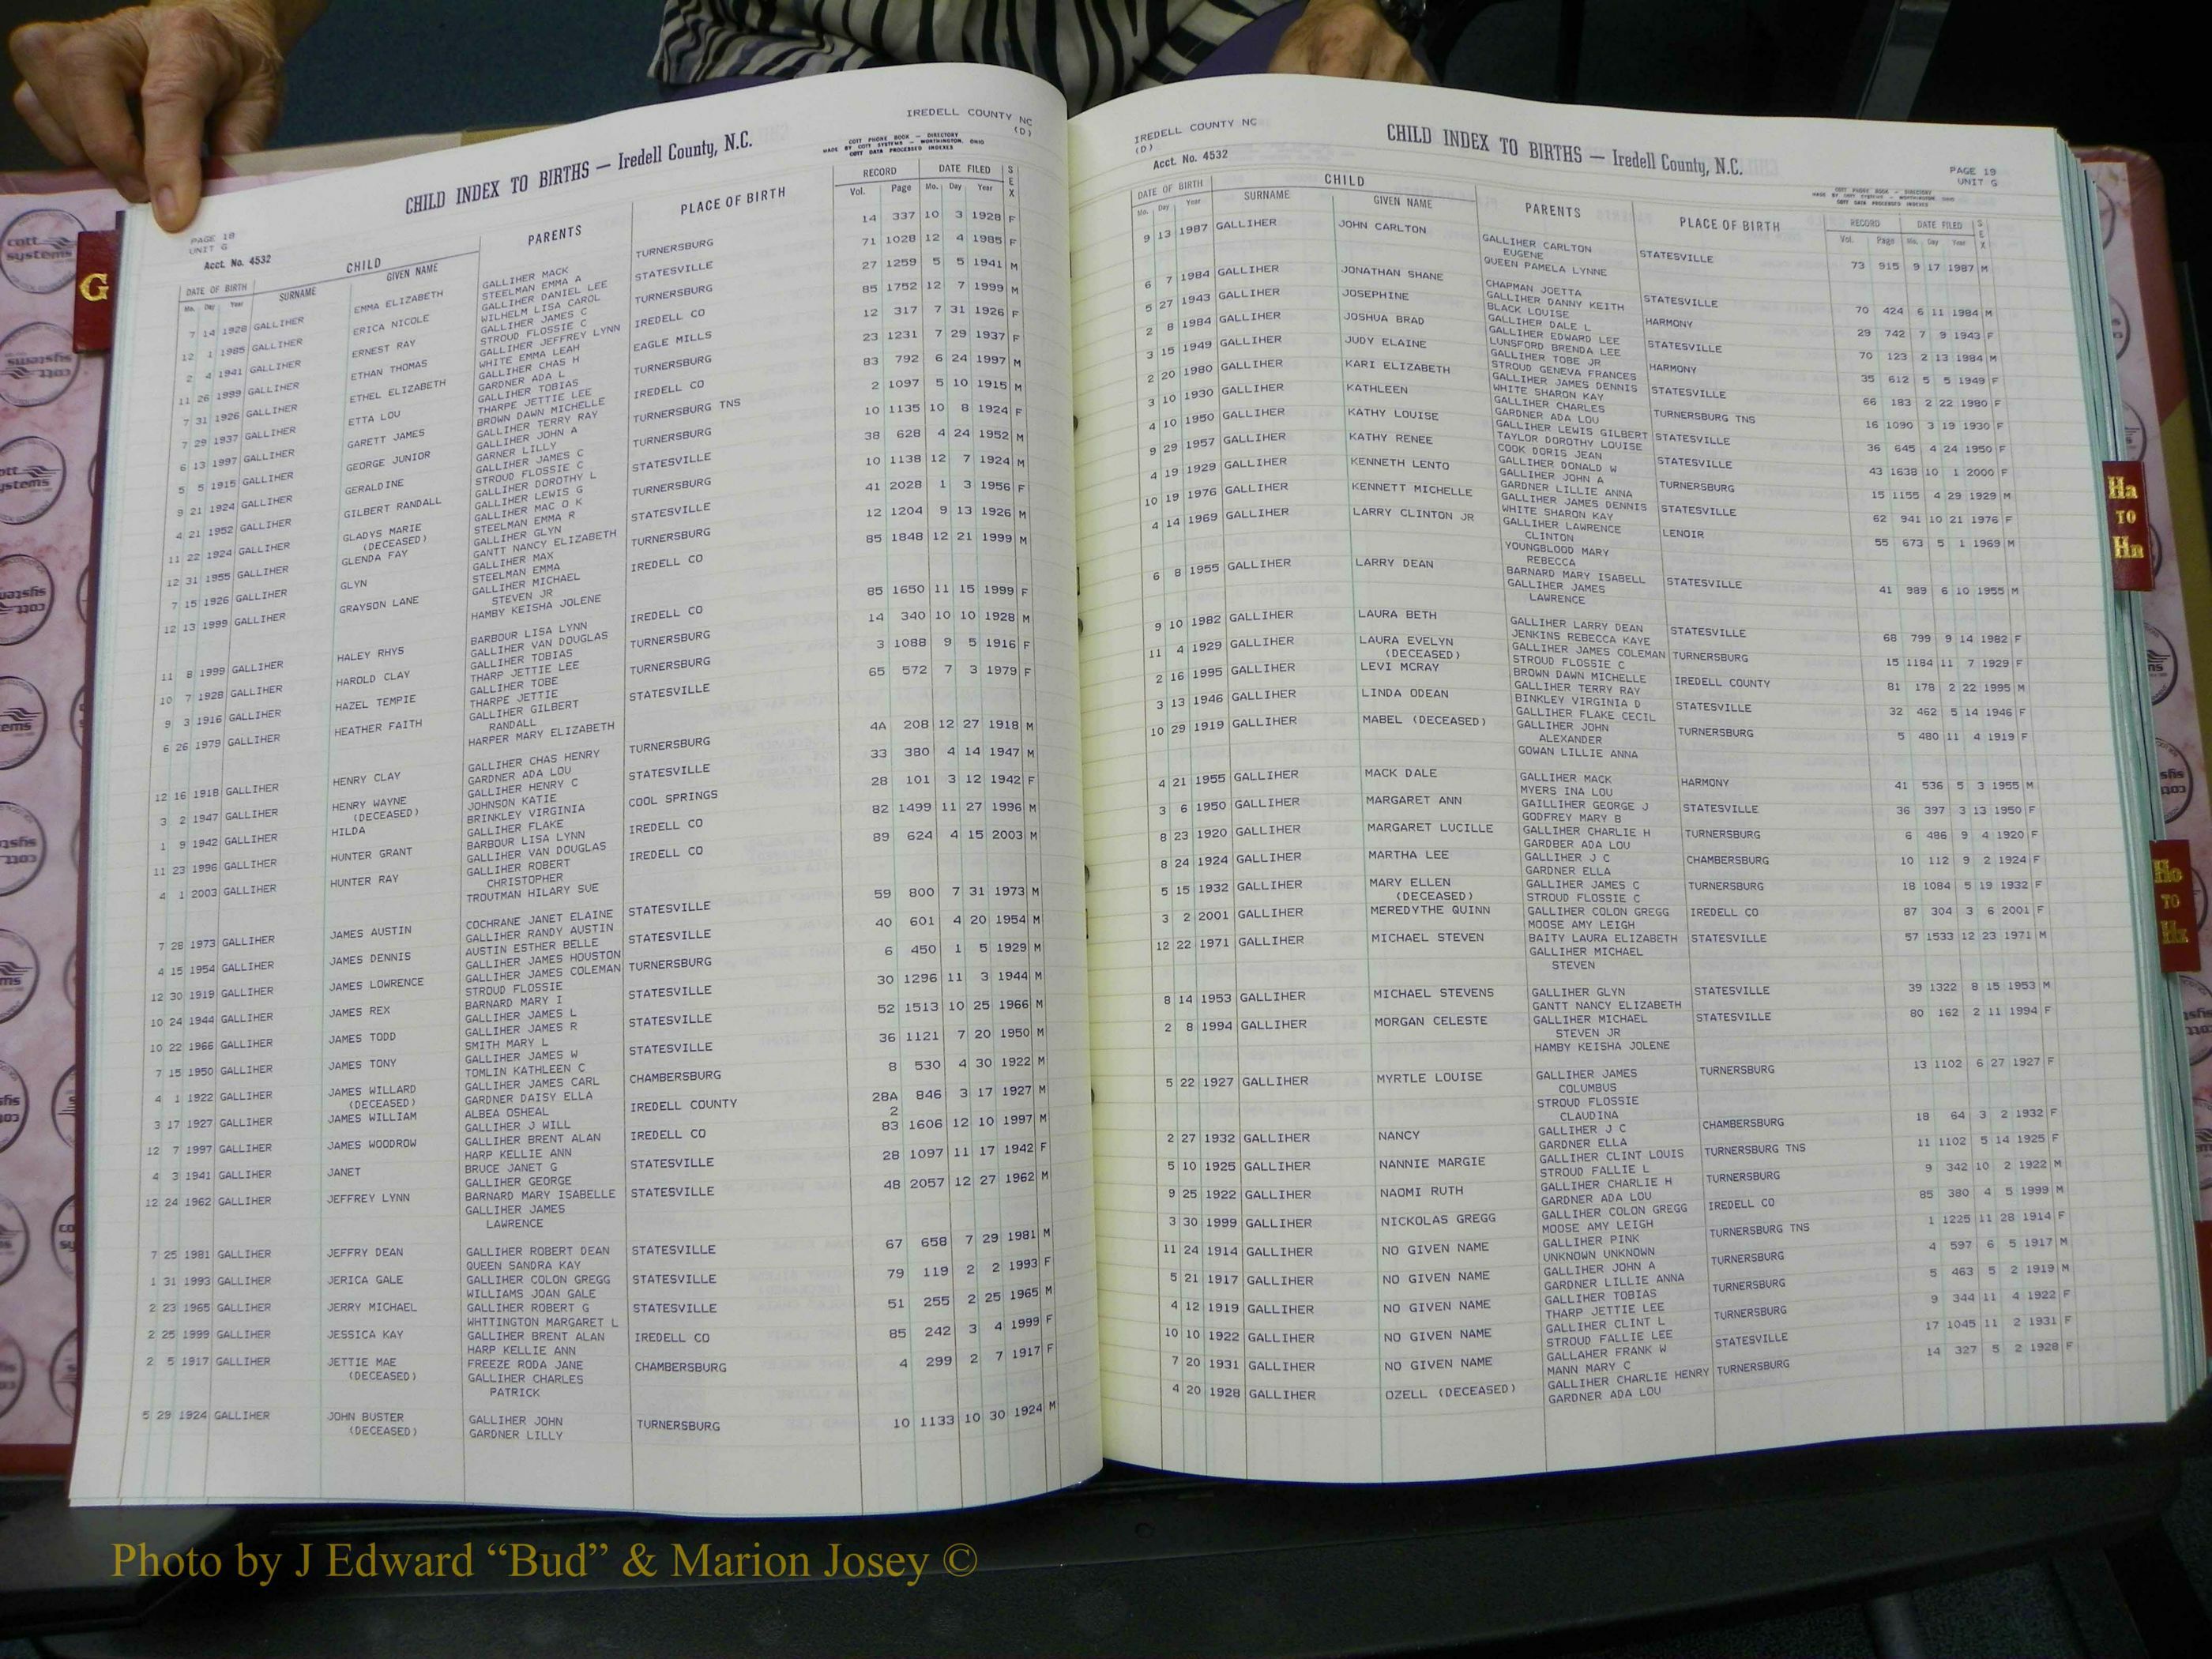 IREDELL COUNTY NC
(D)
CHILD INDEX TO BIRTHS — Iredell County, N.C.
COTT PHONE BOOK — DIRECTORY
MADE BY COTT SYSTEMS — WORTHINGTON, OHIO
COTT DATA PROCESSED INDEXES
PAGE 18
UNIT G
Acct. No. 4532
DATE OF BIRTH CHILD PARENTS PLACE OF BIRTH RECORD DATE FILED SEX
Mo. Day Year SURNAME GIVEN NAME Vol. Page Mo. Day Year
7 14 1928 GALLIHER EMMA ELIZABETH GALLIHER MACK TURNERSBURG 14 337 10 3 1928 F
STEELMAN EMMA A
12 1 1985 GALLIHER ERICA NICOLE GALLIHER DANIEL LEE STATESVILLE 71 1028 12 4 1985 F
WILHELM LISA CAROL
2 4 1941 GALLIHER ERNEST RAY GALLIHER JAMES C TURNERSBURG 27 1259 5 5 1941 M
STROUD FLOSSIE C
11 26 1999 GALLIHER ETHAN THOMAS GALLIHER JEFFREY LYNN IREDELL CO 85 1752 12 7 1999 M
WHITE EMMA LEAH
7 31 1926 GALLIHER ETHEL ELIZABETH GALLIHER CHAS H EAGLE MILLS 12 317 7 31 1926 F
GARDNER ADA L
7 29 1937 GALLIHER ETTA LOU GALLIHER TOBIAS TURNERSBURG 23 1231 7 29 1937 F
THARPE JETTIE LEE
6 13 1997 GALLIHER GARETT JAMES BROWN DAWN MICHELLE IREDELL CO 83 792 6 24 1997 M
GALLIHER TERRY RAY
5 5 1915 GALLIHER GEORGE JUNIOR GALLIHER JOHN A TURNERSBURG TNS 2 1097 5 10 1915 M
GARNER LILLY
9 21 1924 GALLIHER GERALDINE GALLIHER JAMES C TURNERSBURG 10 1135 10 8 1924 F
STROUD FLOSSIE C
4 21 1952 GALLIHER GILBERT RANDALL GALLIHER DOROTHY L STATESVILLE 38 628 4 24 1952 M
GALLIHER LEWIS G
11 22 1924 GALLIHER GLADYS MARIE GALLIHER MAC O K TURNERSBURG 10 1138 12 7 1924 M
(DECEASED) STEELMAN EMMA R
12 31 1955 GALLIHER GLENDA FAY GALLIHER GLYN STATESVILLE 41 2028 1 3 1956 F
GANTT NANCY ELIZABETH
7 15 1926 GALLIHER GLYN GALLIHER MAX TURNERSBURG 12 1204 9 13 1926 M
STEELMAN EMMA
12 13 1999 GALLIHER GRAYSON LANE GALLIHER MICHAEL IREDELL CO 85 1848 12 21 1999 M
STEVEN JR
HAMBY KEISHA JOLENE
11 8 1999 GALLIHER HALEY RHYS BARBOUR LISA LYNN IREDELL CO 85 1650 11 15 1999 F
GALLIHER VAN DOUGLAS
10 7 1928 GALLIHER HAROLD CLAY GALLIHER TOBIAS TURNERSBURG 14 340 10 10 1928 M
THARP JETTIE LEE
9 3 1916 GALLIHER HAZEL TEMPIE GALLIHER TOBE TURNERSBURG 3 1088 9 5 1916 F
THARPE JETTIE
6 26 1979 GALLIHER HEATHER FAITH GALLIHER GILBERT STATESVILLE 65 572 7 3 1979 F
RANDALL
HARPER MARY ELIZABETH
12 16 1918 GALLIHER HENRY CLAY GALLIHER CHAS HENRY TURNERSBURG 4A 208 12 27 1918 M
GARDNER ADA LOU
3 2 1947 GALLIHER HENRY WAYNE GALLIHER HENRY C STATESVILLE 33 380 4 14 1947 M
(DECEASED) JOHNSON KATIE
1 9 1942 GALLIHER HILDA BRINKLEY VIRGINIA COOL SPRINGS 28 101 3 12 1942 F
GALLIHER FLAKE
11 23 1996 GALLIHER HUNTER GRANT BARBOUR LISA LYNN IREDELL CO 82 1499 11 27 1996 M
GALLIHER VAN DOUGLAS
4 1 2003 GALLIHER HUNTER RAY GALLIHER ROBERT IREDELL CO 89 624 4 15 2003 M
CHRISTOPHER
TROUTMAN HILARY SUE
7 28 1973 GALLIHER JAMES AUSTIN COCHRANE JANET ELAINE STATESVILLE 59 800 7 31 1973 M
GALLIHER RANDY AUSTIN
4 15 1954 GALLIHER JAMES DENNIS AUSTIN ESTHER BELLE STATESVILLE 40 601 4 20 1954 M
GALLIHER JAMES HOUSTON
12 30 1919 GALLIHER JAMES LOWRENCE GALLIHER JAMES COLEMAN TURNERSBURG 6 450 1 5 1929 M
STROUD FLOSSIE
10 24 1944 GALLIHER JAMES REX BARNARD MARY I STATESVILLE 30 1296 11 3 1944 M
GALLIHER JAMES L
10 22 1966 GALLIHER JAMES TODD GALLIHER JAMES R STATESVILLE 52 1513 10 25 1966 M
SMITH MARY L
7 15 1950 GALLIHER JAMES TONY GALLIHER JAMES W STATESVILLE 36 1121 7 20 1950 M
TOMLIN KATHLEEN C
4 1 1922 GALLIHER JAMES WILLARD GALLIHER JAMES CARL CHAMBERSBURG 8 530 4 30 1922 M
(DECEASED) GARDNER DAISY ELLA
3 17 1927 GALLIHER JAMES WILLIAM ALBEA OSHEAL IREDELL COUNTY 28A 846 3 17 1927 M
GALLIHER J WILL 2
12 7 1997 GALLIHER JAMES WOODROW GALLIHER BRENT ALAN IREDELL CO 83 1606 12 10 1997 M
HARP KELLIE ANN
4 3 1941 GALLIHER JANET BRUCE JANET G STATESVILLE 28 1097 11 17 1942 F
GALLIHER GEORGE
12 24 1962 GALLIHER JEFFREY LYNN BARNARD MARY ISABELLE STATESVILLE 48 2057 12 27 1962 M
GALLIHER JAMES
LAWRENCE
7 25 1981 GALLIHER JEFFRY DEAN GALLIHER ROBERT DEAN STATESVILLE 67 658 7 29 1981 M
QUEEN SANDRA KAY
1 31 1993 GALLIHER JERICA GALE GALLIHER COLON GREGG STATESVILLE 79 119 2 2 1993 F
WILLIAMS JOAN GALE
2 23 1965 GALLIHER JERRY MICHAEL GALLIHER ROBERT G STATESVILLE 51 255 2 25 1965 M
WHTTINGTON MARGARET L
2 25 1999 GALLIHER JESSICA KAY GALLIHER BRENT ALAN IREDELL CO 85 242 3 4 1999 F
HARP KELLIE ANN
2 5 1917 GALLIHER JETTIE MAE FREEZE RODA JANE CHAMBERSBURG 4 299 2 7 1917 F
(DECEASED) GALLIHER CHARLES
PATRICK
5 29 1924 GALLIHER JOHN BUSTER GALLIHER JOHN TURNERSBURG 10 1133 10 30 1924 M
(DECEASED) GARDNER LILLY
IREDELL COUNTY NC
(D)
Acct. No. 4532
CHILD INDEX TO BIRTHS — Iredell County, N.C.
PAGE 19
UNIT G
COTT PHONE BOOK — DIRECTORY
MADE BY COTT SYSTEMS — WORTHINGTON, OHIO
COTT DATA PROCESSED INDEXES
DATE OF BIRTH CHILD PARENTS PLACE OF BIRTH RECORD DATE FILED SEX
Mo. Day Year SURNAME GIVEN NAME Vol. Page Mo. Day Year
9 13 1987 GALLIHER JOHN CARLTON GALLIHER CARLTON STATESVILLE 73 915 9 17 1987 M
EUGENE
QUEEN PAMELA LYNNE
6 7 1984 GALLIHER JONATHAN SHANE CHAPMAN JOETTA STATESVILLE 70 424 6 11 1984 M
GALLIHER DANNY KEITH
5 27 1943 GALLIHER JOSEPHINE BLACK LOUISE HARMONY 29 742 7 9 1943 F
GALLIHER DALE L
2 8 1984 GALLIHER JOSHUA BRAD GALLIHER EDWARD LEE STATESVILLE 70 123 2 13 1984 M
LUNSFORD BRENDA LEE
3 15 1949 GALLIHER JUDY ELAINE GALLIHER TOBE JR HARMONY 35 612 5 5 1949 F
STROUD GENEVA FRANCES
2 20 1980 GALLIHER KARI ELIZABETH GALLIHER JAMES DENNIS STATESVILLE 66 183 2 22 1980 F
WHITE SHARON KAY
3 10 1930 GALLIHER KATHLEEN GALLIHER CHARLES TURNERSBURG TNS 16 1090 3 19 1930 F
GARDNER ADA LOU
4 10 1950 GALLIHER KATHY LOUISE GALLIHER LEWIS GILBERT STATESVILLE 36 645 4 24 1950 F
TAYLOR DOROTHY LOUISE
9 29 1957 GALLIHER KATHY RENEE COOK DORIS JEAN STATESVILLE 43 1638 10 1 2000 F
GALLIHER DONALD W
4 19 1929 GALLIHER KENNETH LENTO GALLIHER JOHN A TURNERSBURG 15 1155 4 29 1929 M
GARDNER LILLIE ANNA
10 19 1976 GALLIHER KENNETT MICHELLE GALLIHER JAMES DENNIS STATESVILLE 62 941 10 21 1976 F
WHITE SHARON KAY
4 14 1969 GALLIHER LARRY CLINTON JR GALLIHER LAWRENCE LENOIR 55 673 5 1 1969 M
CLINTON
YOUNGBLOOD MARY
REBECCA
6 8 1955 GALLIHER LARRY DEAN BARNARD MARY ISABELL STATESVILLE 41 989 6 10 1955 M
GALLIHER JAMES
LAWRENCE
9 10 1982 GALLIHER LAURA BETH GALLIHER LARRY DEAN STATESVILLE 68 799 9 14 1982 F
JENKINS REBECCA KAYE
11 4 1929 GALLIHER LAURA EVELYN GALLIHER JAMES COLEMAN TURNERSBURG 15 1184 11 7 1929 F
(DECEASED) STROUD FLOSSIE C
2 16 1995 GALLIHER LEVI MCRAY BROWN DAWN MICHELLE IREDELL COUNTY 81 178 2 22 1995 M
GALLIHER TERRY RAY
3 13 1946 GALLIHER LINDA ODEAN BINKLEY VIRGINIA D STATESVILLE 32 462 5 14 1946 F
GALLIHER FLAKE CECIL
10 29 1919 GALLIHER MABEL (DECEASED) GALLIHER JOHN TURNERSBURG 5 480 11 4 1919 F
ALEXANDER
GOWAN LILLIE ANNA
4 21 1955 GALLIHER MACK DALE GALLIHER MACK HARMONY 41 536 5 3 1955 M
MYERS INA LOU
3 6 1950 GALLIHER MARGARET ANN GAILLIHER GEORGE J STATESVILLE 36 397 3 13 1950 F
GODFREY MARY B
8 23 1920 GALLIHER MARGARET LUCILLE GALLIHER CHARLIE H TURNERSBURG 6 486 9 4 1920 F
GARDBER ADA LOU
8 24 1924 GALLIHER MARTHA LEE GALLIHER J C CHAMBERSBURG 10 112 9 2 1924 F
GARDNER ELLA
5 15 1932 GALLIHER MARY ELLEN GALLIHER JAMES C TURNERSBURG 18 1084 5 19 1932 F
(DECEASED) STROUD FLOSSIE C
3 2 2001 GALLIHER MEREDYTHE QUINN GALLIHER COLON GREGG IREDELL CO 87 304 3 6 2001 F
MOOSE AMY LEIGH
12 22 1971 GALLIHER MICHAEL STEVEN BAITY LAURA ELIZABETH STATESVILLE 57 1533 12 23 1971 M
GALLIHER MICHAEL
STEVEN
8 14 1953 GALLIHER MICHAEL STEVENS GALLIHER GLYN STATESVILLE 39 1322 8 15 1953 M
GANTT NANCY ELIZABETH
2 8 1994 GALLIHER MORGAN CELESTE GALLIHER MICHAEL STATESVILLE 80 162 2 11 1994 F
STEVEN JR
HAMBY KEISHA JOLENE
5 22 1927 GALLIHER MYRTLE LOUISE GALLIHER JAMES TURNERSBURG 13 1102 6 27 1927 F
COLUMBUS
STROUD FLOSSIE
CLAUDINA
2 27 1932 GALLIHER NANCY GALLIHER J C CHAMBERSBURG 18 64 3 2 1932 F
GARDNER ELLA
5 10 1925 GALLIHER NANNIE MARGIE GALLIHER CLINT LOUIS TURNERSBURG TNS 11 1102 5 14 1925 F
STROUD FALLIE L
9 25 1922 GALLIHER NAOMI RUTH GALLIHER CHARLIE H TURNERSBURG 9 342 10 2 1922 M
GARDNER ADA LOU
3 30 1999 GALLIHER NICKOLAS GREGG GALLIHER COLON GREGG IREDELL CO 85 380 4 5 1999 M
MOOSE AMY LEIGH
11 24 1914 GALLIHER NO GIVEN NAME GALLIHER PINK TURNERSBURG TNS 1 1225 11 28 1914 F
UNKNOWN UNKNOWN
5 21 1917 GALLIHER NO GIVEN NAME GALLIHER JOHN A TURNERSBURG 4 597 6 5 1917 M
GARDNER LILLIE ANNA
4 12 1919 GALLIHER NO GIVEN NAME GALLIHER TOBIAS TURNERSBURG 5 463 5 2 1919 M
THARP JETTIE LEE
10 10 1922 GALLIHER NO GIVEN NAME GALLIHER CLINT L TURNERSBURG 9 344 11 4 1922 F
STROUD FALLIE LEE
7 20 1931 GALLIHER NO GIVEN NAME GALLAHER FRANK W STATESVILLE 17 1045 11 2 1931 F
MANN MARY C
4 20 1928 GALLIHER OZELL (DECEASED) GALLIHER CHARLIE HENRY TURNERSBURG 14 327 5 2 1928 F
GARDNER ADA LOU
G
Ha
TO
Hn
Ho
TO
Hz
cott
systems
Photo by J Edward “Bud” & Marion Josey ©